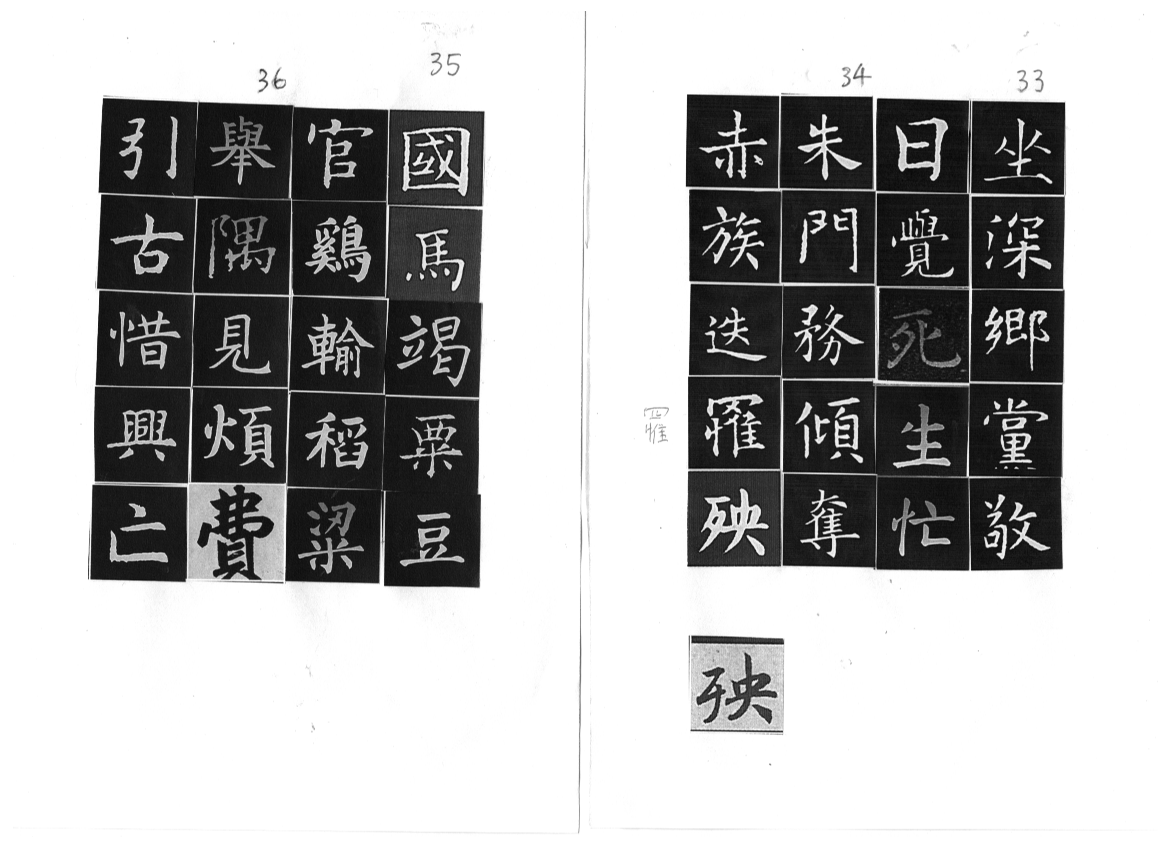 33
坐深鄉黨敬
日覺死生忙
34
朱門務傾奪
赤族迭罹殃
罹
殃
35
國馬竭粟豆
官鷄輸稻粱
36
舉隅見煩費
引古惜興亡